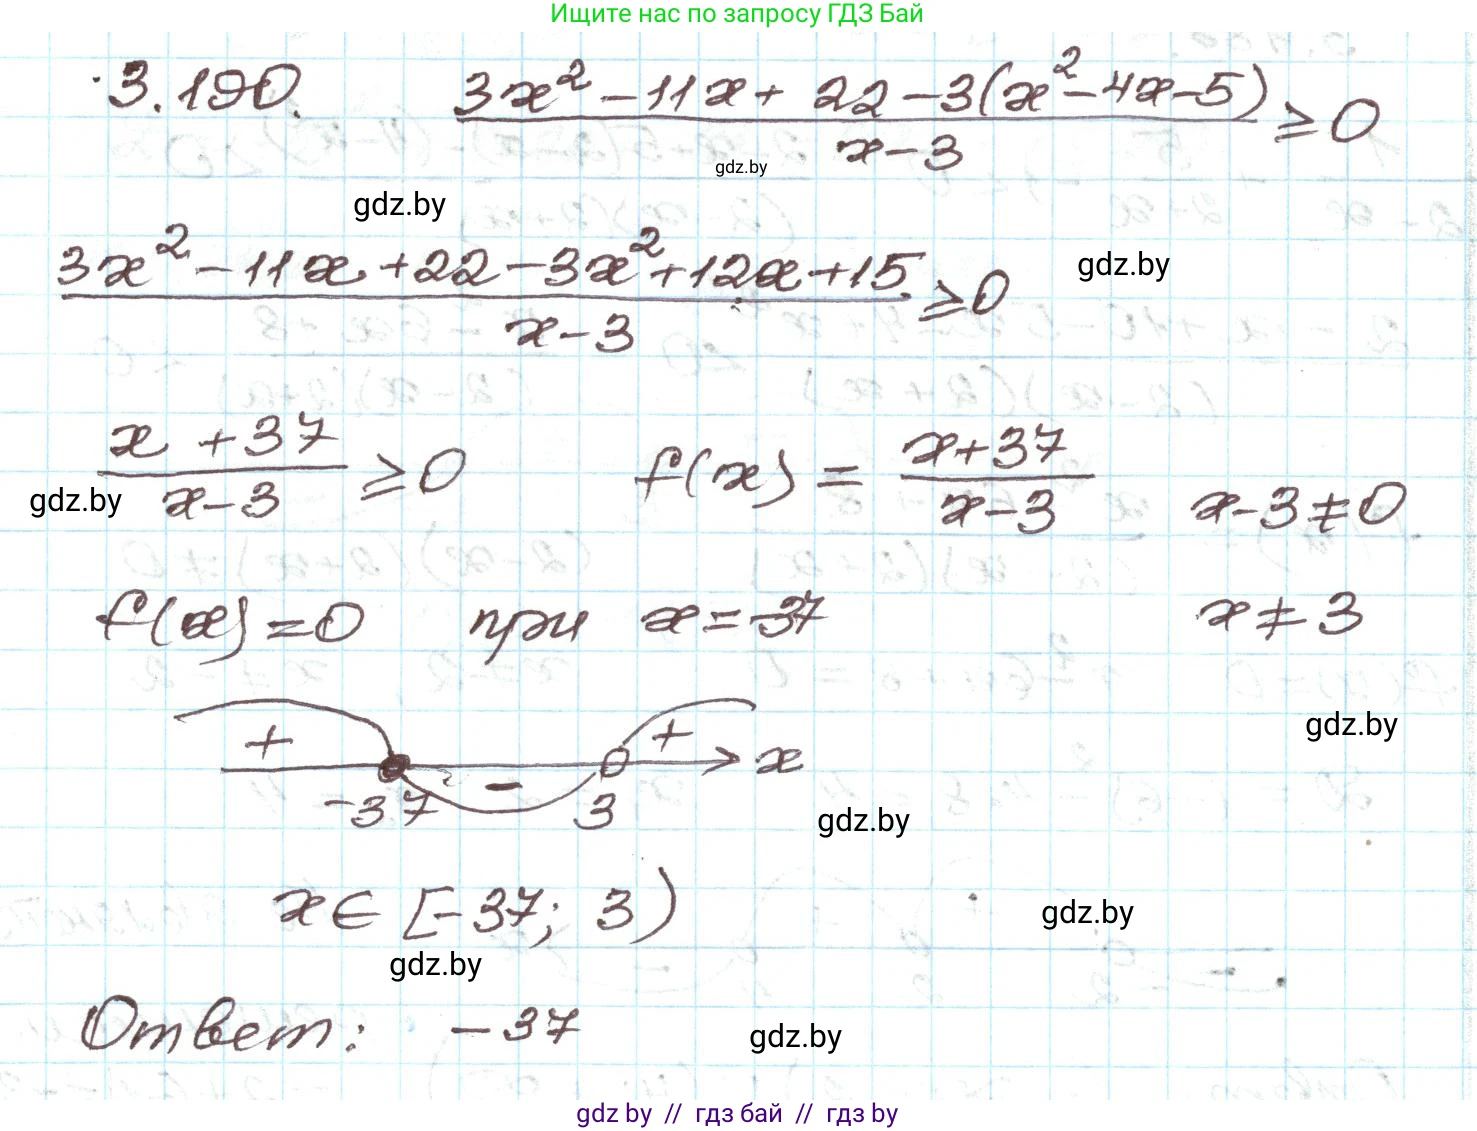 Ищите нас по запросу ГДЗ Бай
3.190. (3x² - 11x + 22 - 3(x² - 4x - 5))/(x - 3) ≥ 0
gdz.by
gdz.by
(3x² - 11x + 22 - 3x² + 12x + 15)/(x - 3) ≥ 0
gdz.by
(x + 37)/(x - 3) ≥ 0 f(x) = (x + 37)/(x - 3) x - 3 ≠ 0
gdz.by
f(x) = 0 при x = -37 x ≠ 3
+ - + x
gdz.by
-37 3
gdz.by
x ∈ [-37; 3)
gdz.by
gdz.by
Ответ: -37
gdz.by
gdz by // гдз бай // гдз by